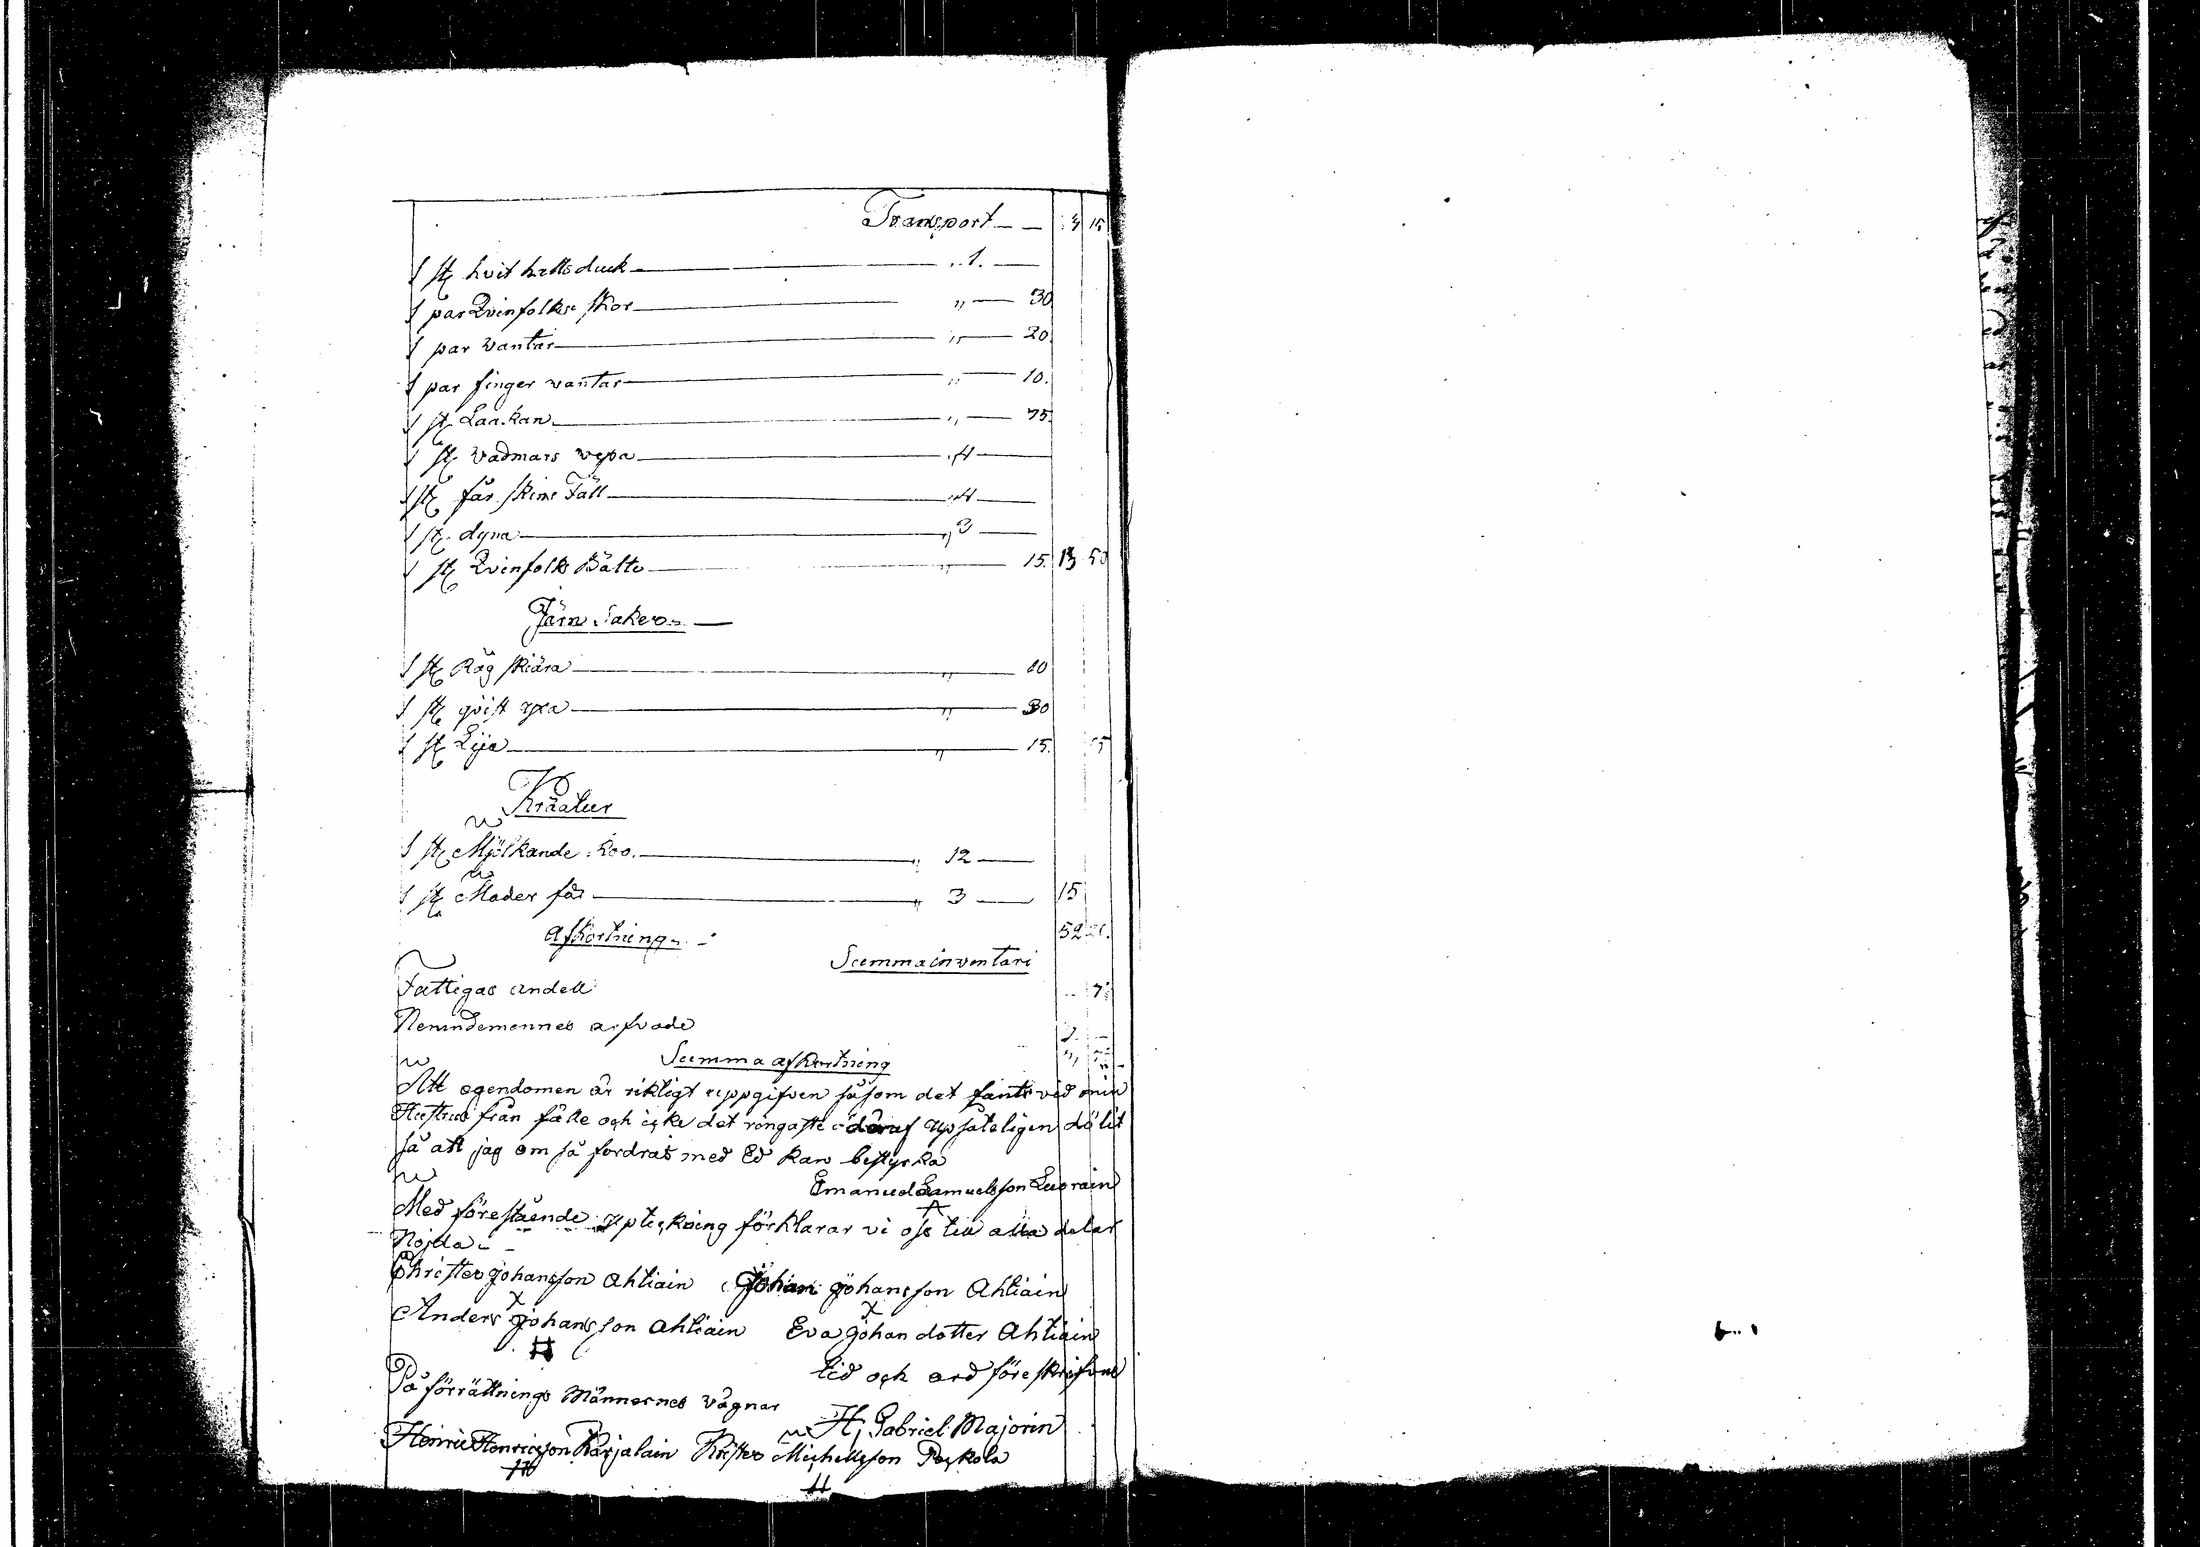 Transport — —
1 st. hvit hallsduck — „ 1. —
1 par Qvinfolks skor — „ — 30
1 par vantar — „ — 20
1 par finger vantar — „ — 10.
1 st. Laakan — „ — 75.
1 st. vadmars vepa — „ 4 —
1 st. får skins Fäll — „ 4 —
1 st. dyna — „ 3 —
1 st. Qvinfolks Bälte — „ — 15. 13 50
Järn Saker —
1 st. Råg skiära — „ — 10
1 st. qvist yxa — „ — 30
1 st. Liia — „ — 15.
Kräatur
1 st. Mjölkande Koo. — „ 12 —
1 st. Moder får — „ 3 — 15
Afkortning 52
Summa inventari
Fattigas andell
Nemndemennes arfvode
Summa afkortning
Att egendomen är riktigt uppgifven såsom det fants vid min
Hustrus från fälle och icke det ringaste däraf upsåteligen dölit
så att jag om så fordras med Ed kan bestyrka
Emanuel Samuelsson Luorain
Med förestående upteckning förklarar vi oss till alla delar
Nöjda
Christer Johansson Ahtiain Johan Johansson Ahtiain
Anders Johansson Ahtiain Eva Johan dotter Ahtiain
tid och ord föreskrifvne
På förrättnings Männernes vägnar
H. Gabriel Majorin
Henric Henricsson Karjalain Krister Michellsson Pockola